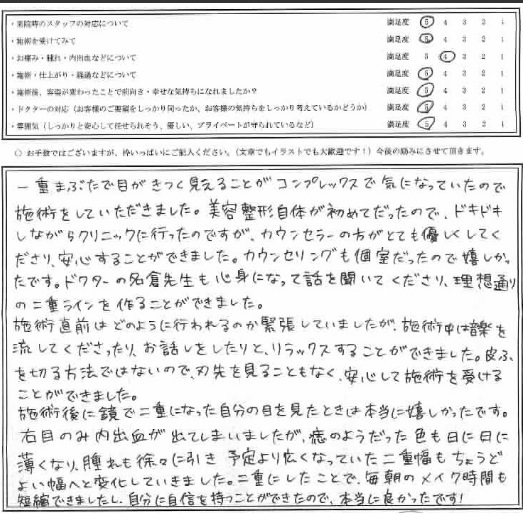 ・来院時のスタッフの対応について 満足度 5 4 3 2 1
・施術を受けてみて 満足度 5 4 3 2 1
・お痛み・腫れ・内出血などについて 満足度 5 4 3 2 1
・施術・仕上がり・経過などについて 満足度 5 4 3 2 1
・施術後、容姿が変わったことで前向き・幸せな気持ちになれましたか? 満足度 5 4 3 2 1
・ドクターの対応(お客様のご要望をしっかり伺ったか、お客様の気持ちをしっかり考えているかどうか) 満足度 5 4 3 2 1
・雰囲気(しっかりと安心して任せられそう、優しい、プライベートが守られているなど) 満足度 5 4 3 2 1
○ お手数ではございますが、枠いっぱいにご記入ください。(文章でもイラストでも大歓迎です!)今後の励みにさせて頂きます。
一重まぶたで目がきつく見えることがコンプレックスで気になっていたので
施術をしていただきました。美容整形自体が初めてだったので、ドキドキ
しながらクリニックに行ったのですが、カウンセラーの方がとても優しくしてく
ださり、安心することができました。カウンセリングも個室だったので嬉しかっ
たです。ドクターの名倉先生も心身になって話を聞いてくださり、理想通り
の二重ラインを作ることができました。
施術直前はどのように行われるのか緊張していましたが、施術中は音楽を
流してくださったり、お話しをしたりと、リラックスすることができました。皮ふ
を切る方法ではないので、刃先を見ることもなく、安心して施術を受ける
ことができました。
施術後に鏡で二重になった自分の目を見たときは本当に嬉しかったです。
右目のみ内出血が出てしまいましたが、痣のようだった色も日に日に
薄くなり、腫れも徐々に引き、予定より広くなっていた二重幅もちょうど
よい幅へと変化していきました。二重にしたことで、毎朝のメイク時間も
短縮できましたし、自分に自信を持つことができたので、本当に良かったです!